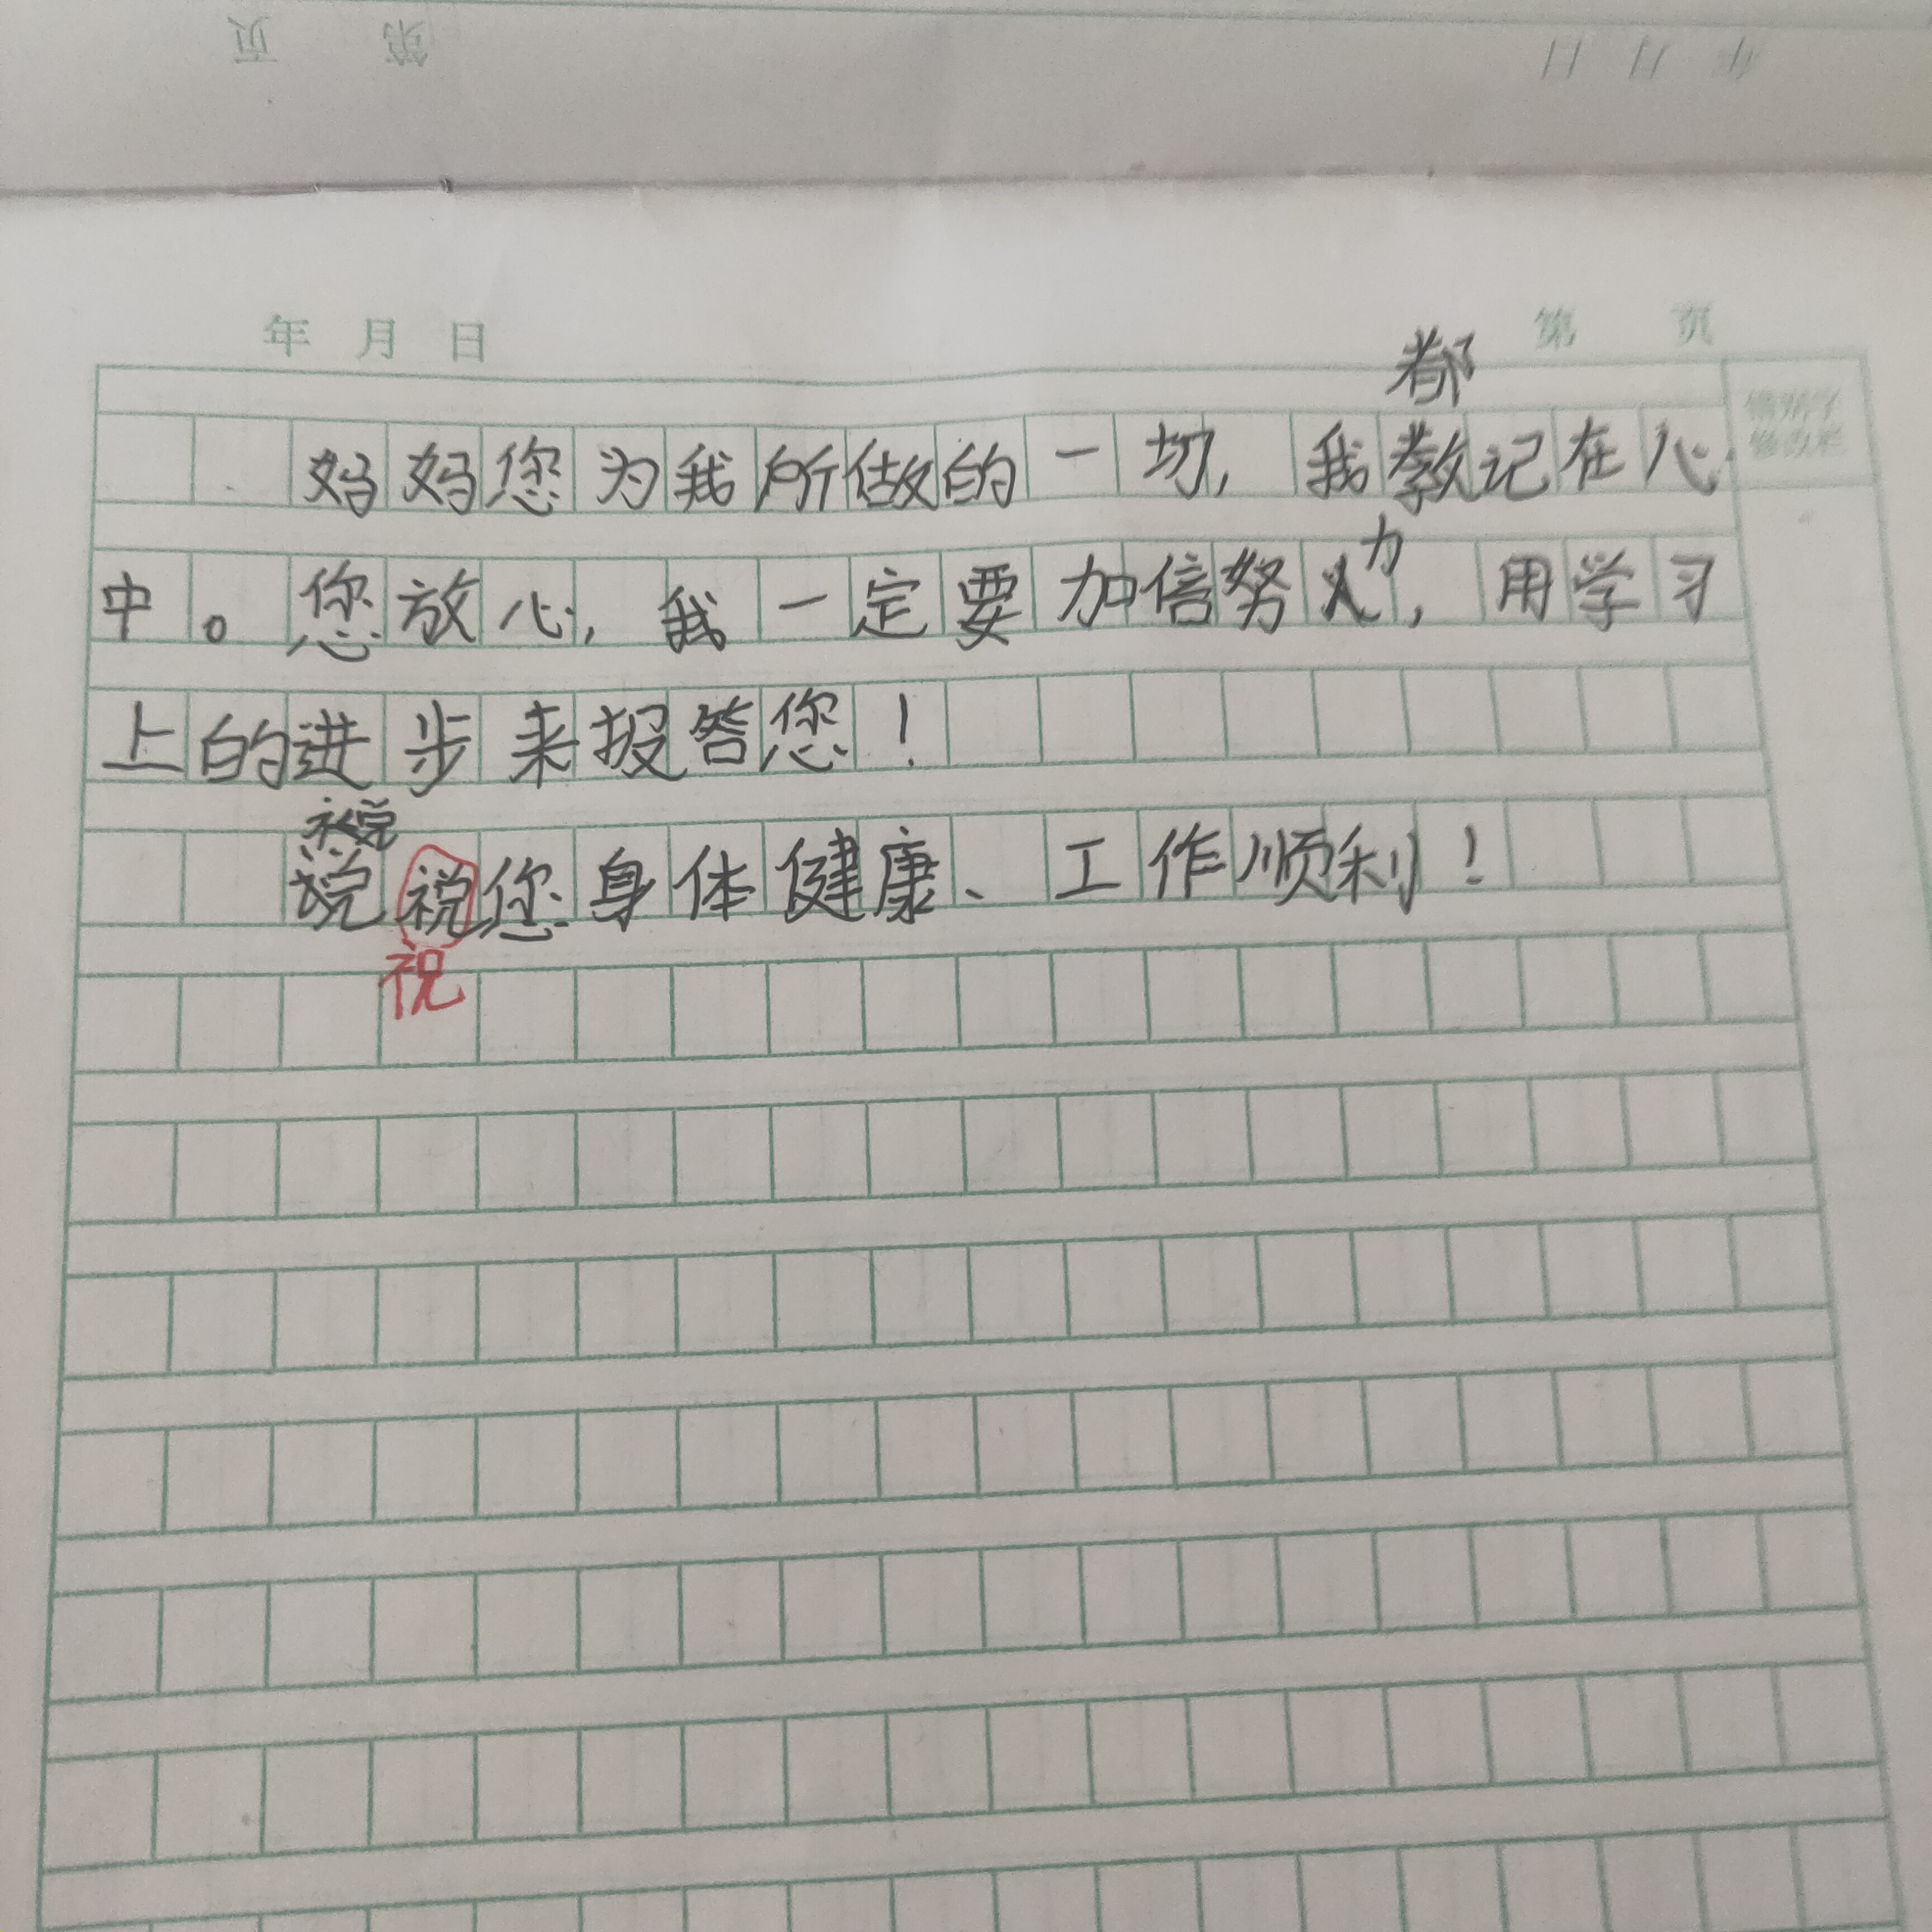 页 第 日 月 年
年 月 日 第 页
都
错别字
修改栏
妈妈您为我所做的一切，我教记在心
力
中。您放心，我一定要加倍努人，用学习
上的进步来报答您！
说祝您身体健康、工作顺利！
祝